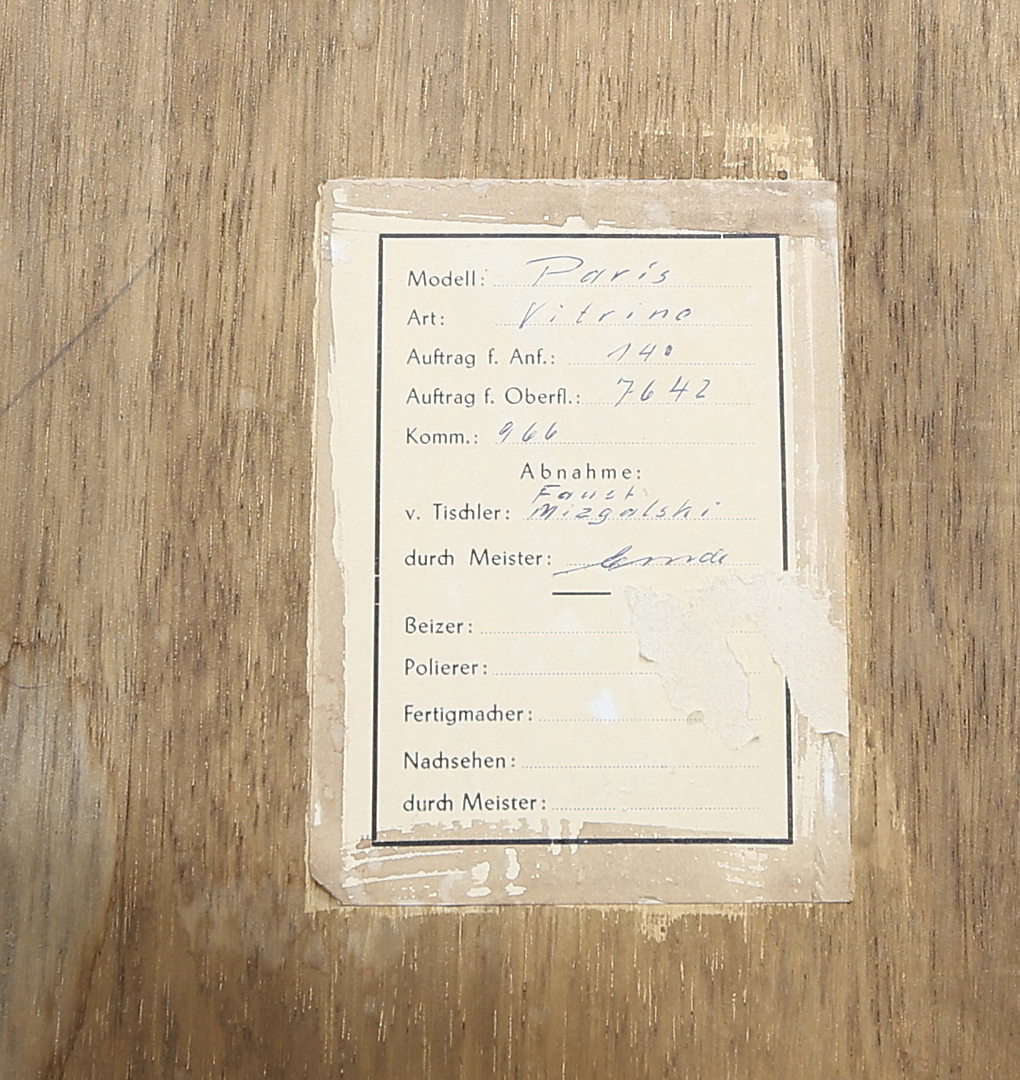 Modell: Paris
Art: Vitrine
Auftrag f. Anf.: 140
Auftrag f. Oberfl.: 7642
Komm.: 966
Abnahme:
Faust
v. Tischler: Mizgalski
durch Meister:
Beizer:
Polierer:
Fertigmacher:
Nachsehen:
durch Meister: